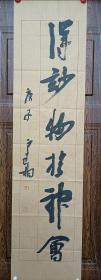 得妙物於神會
庚子